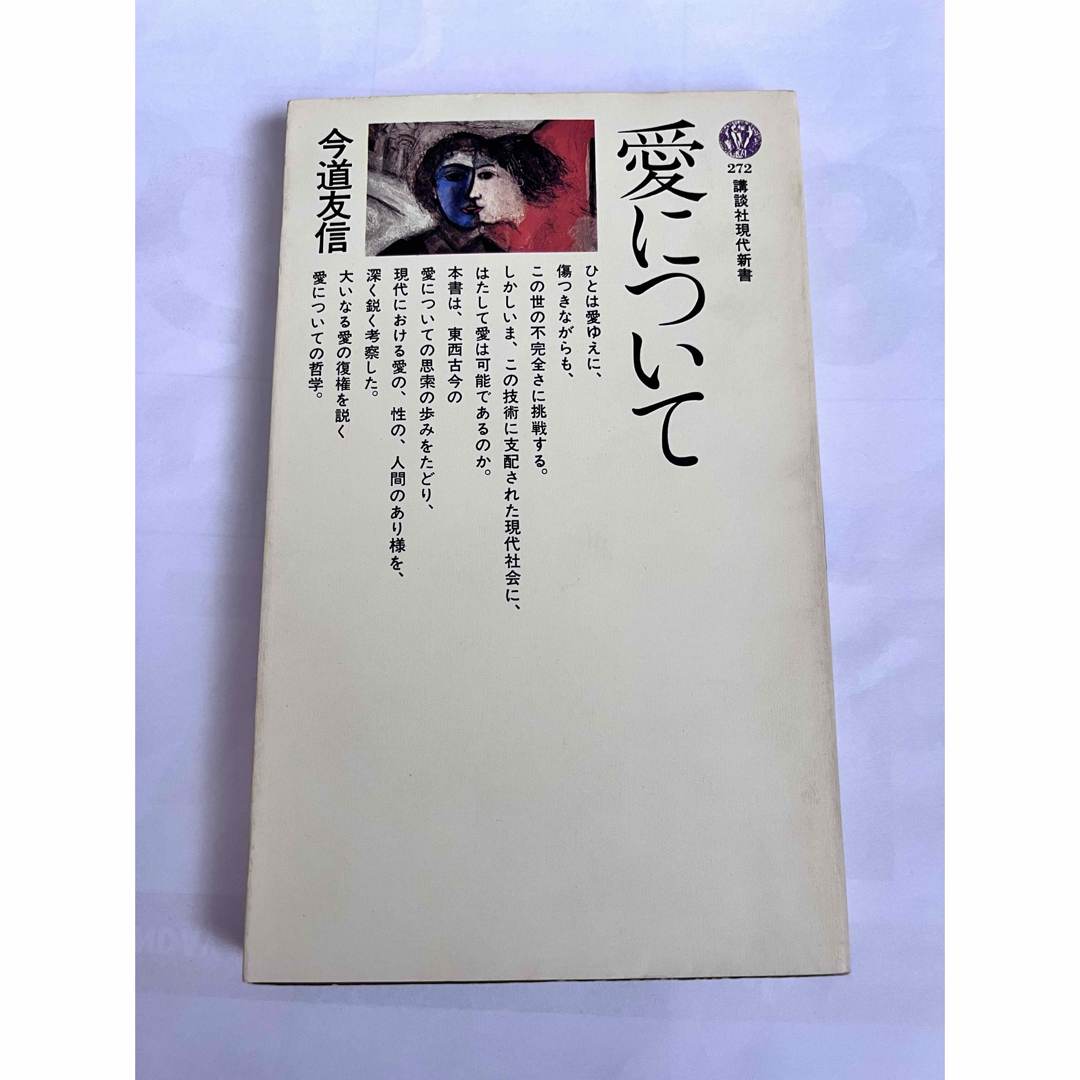 272
講談社現代新書
愛について
ひとは愛ゆえに、
傷つきながらも、
この世の不完全さに挑戦する。
しかしいま、この技術に支配された現代社会に、
はたして愛は可能であるのか。
本書は、東西古今の
愛についての思索の歩みをたどり、
現代における愛の、性の、人間のあり様を、
深く鋭く考察した。
大いなる愛の復権を説く
愛についての哲学。
今道友信